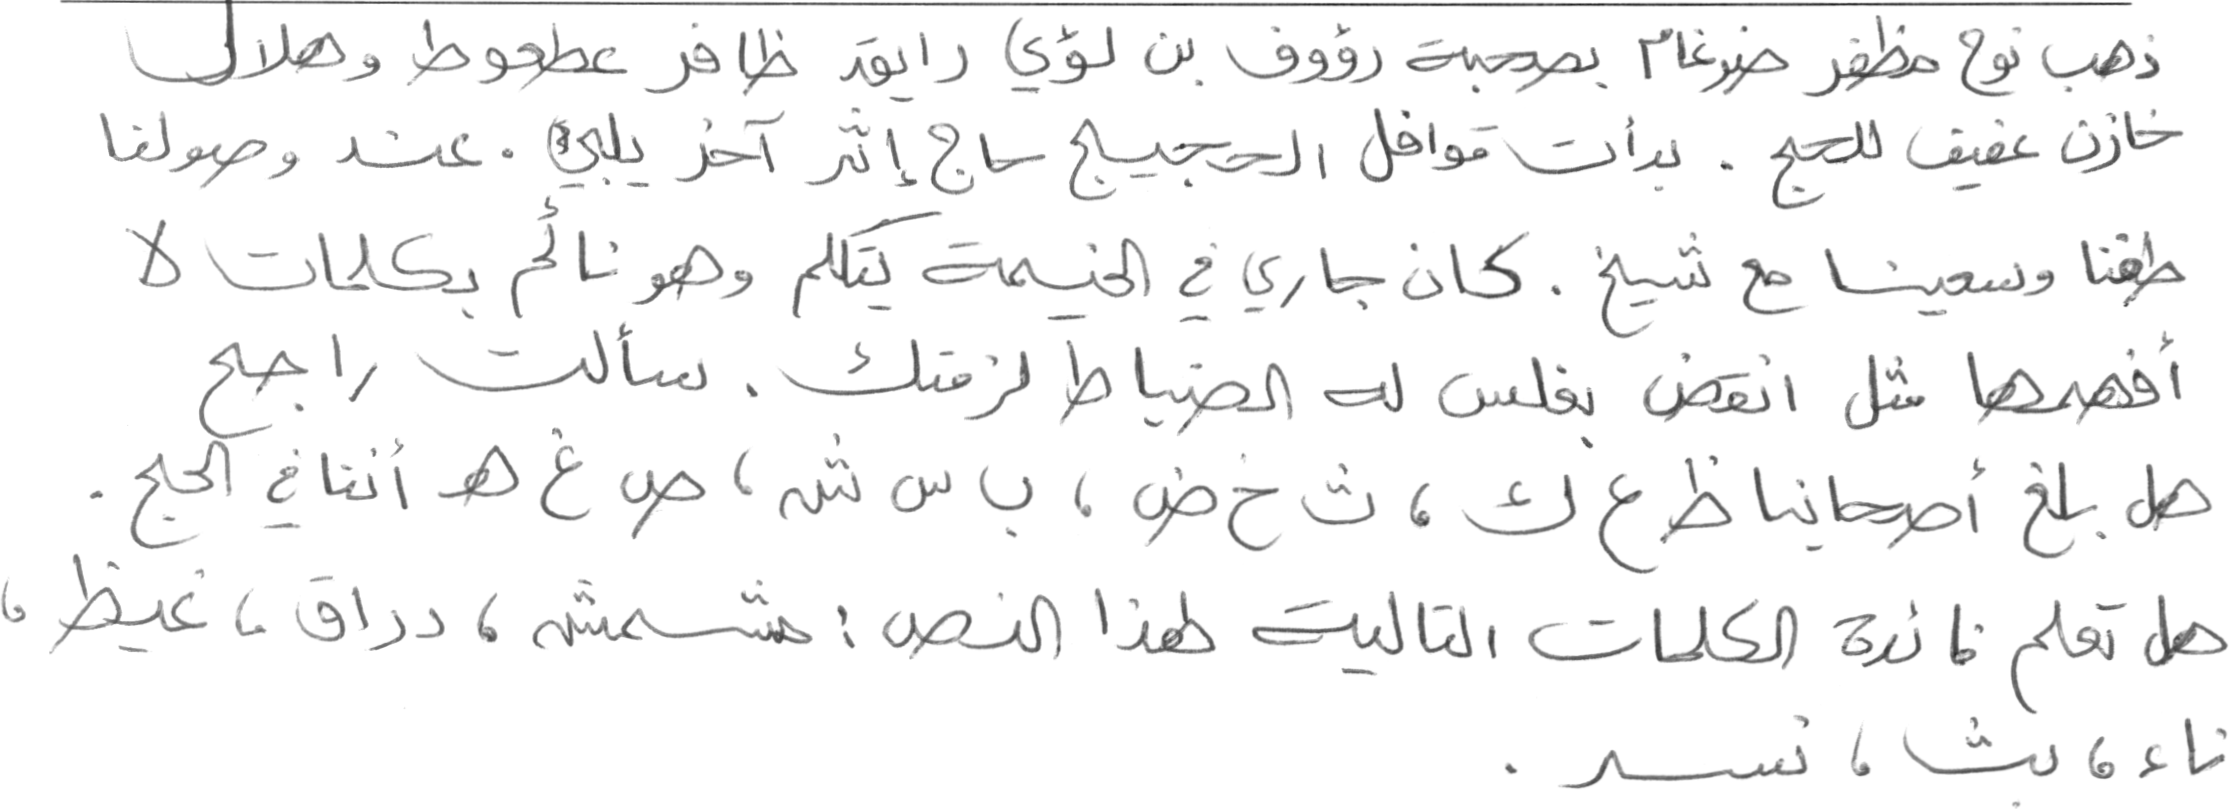 ذهب نوح مظفر ضرغام بصحبة رؤوف بن لؤي رايقد ظافر عطعوط وهلال
خازن عفيف للحج . بدأت قوافل الحجيج حاج إثر آخر يلبي . عند وصولنا
طفنا وسعينا مع شيخ . كان جاري في الخيمة يتكلم وهو نائم بكلمات لا
أفهمها مثل انقض بغلس له الضباط لزمتك . سألت راجح
هل بلغ أصحابنا ظ ع ك ، ث خ ض ، ب س ش ، ص غ هـ أننا في الحج .
هل تعلم فائدة الكلمات التالية لهذا النص : مشمش ، دراق ، غيظ ،
ناء ، بث ، نسر .